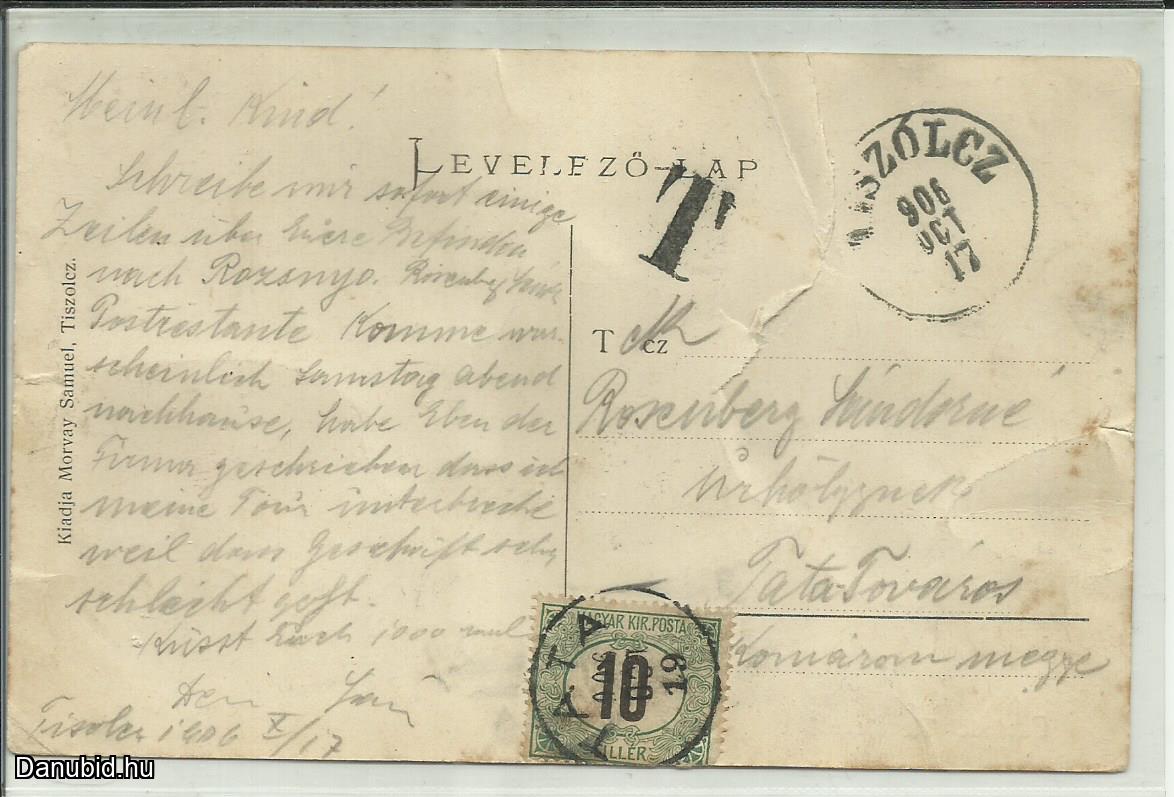 Mein l. Kind!
Schreibe mir sofort einige
Zeilen über Euere Befinden
nach Rozsnyo. Rosenberg
Postrestante Komme war
scheinlich Samstag abend
nachhause, habe Eben der
Firma geschrieben dass ich
meine Tour unterbreche
weil dass Geschäft sehr
schlecht geht.
Küsst Euch 1000 mal
Dein
Tisolcz 1906 X/17
Kiadja Morvay Samuel, Tiszolcz.
LEVELEZŐ-LAP
T
TISZÓLCZ
906
OCT
17
T cz
Rosenberg Sándorné
úrhölgynek
Tata Továros
Komárom megye
MAGYAR KIR. POSTA
10
FILLÉR
TATA
19
Danubid.hu